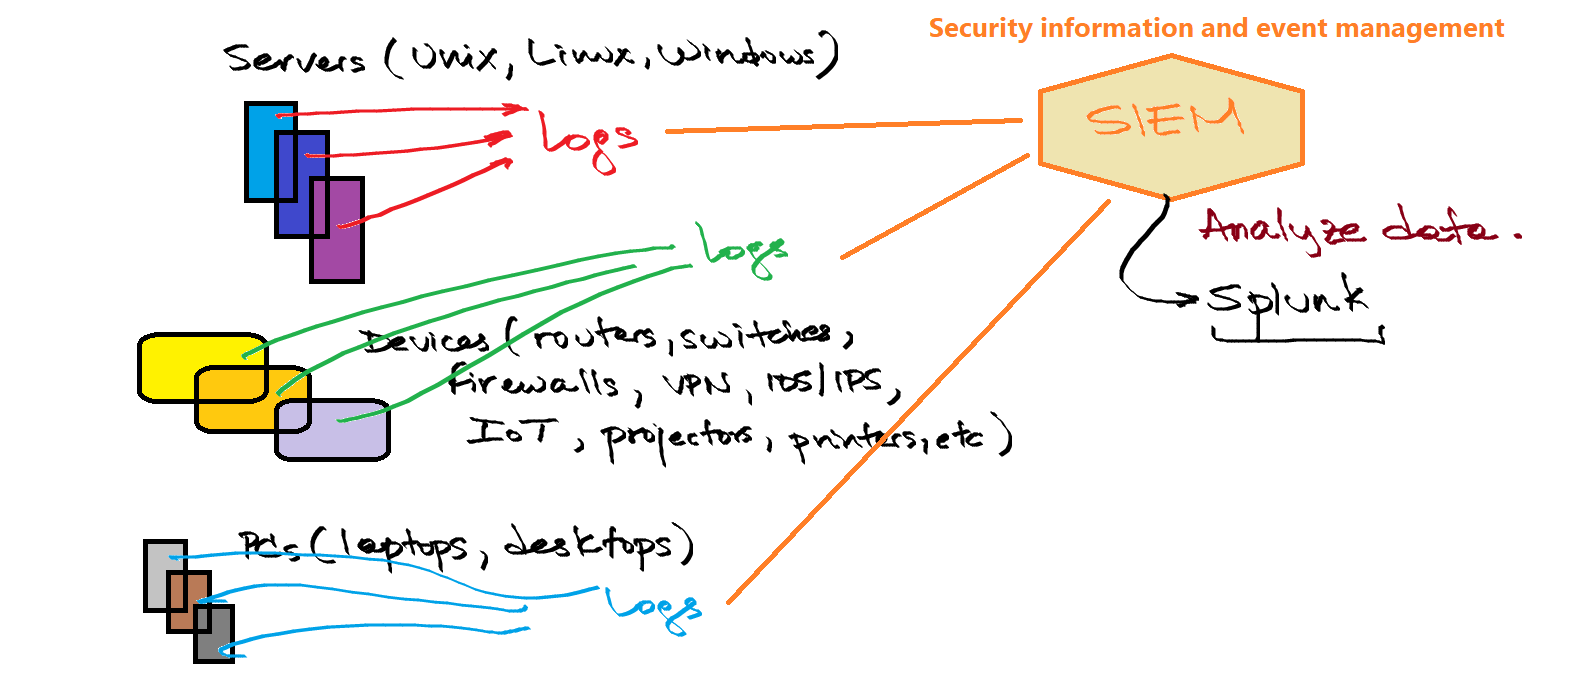 Security information and event management
Servers (Unix, Linux, Windows)
SIEM
Logs
Analyze data.
Logs
Splunk
Devices (routers, switches,
firewalls, VPN, IDS/IPS,
IoT, projectors, printers, etc)
PCs (laptops, desktops)
Logs